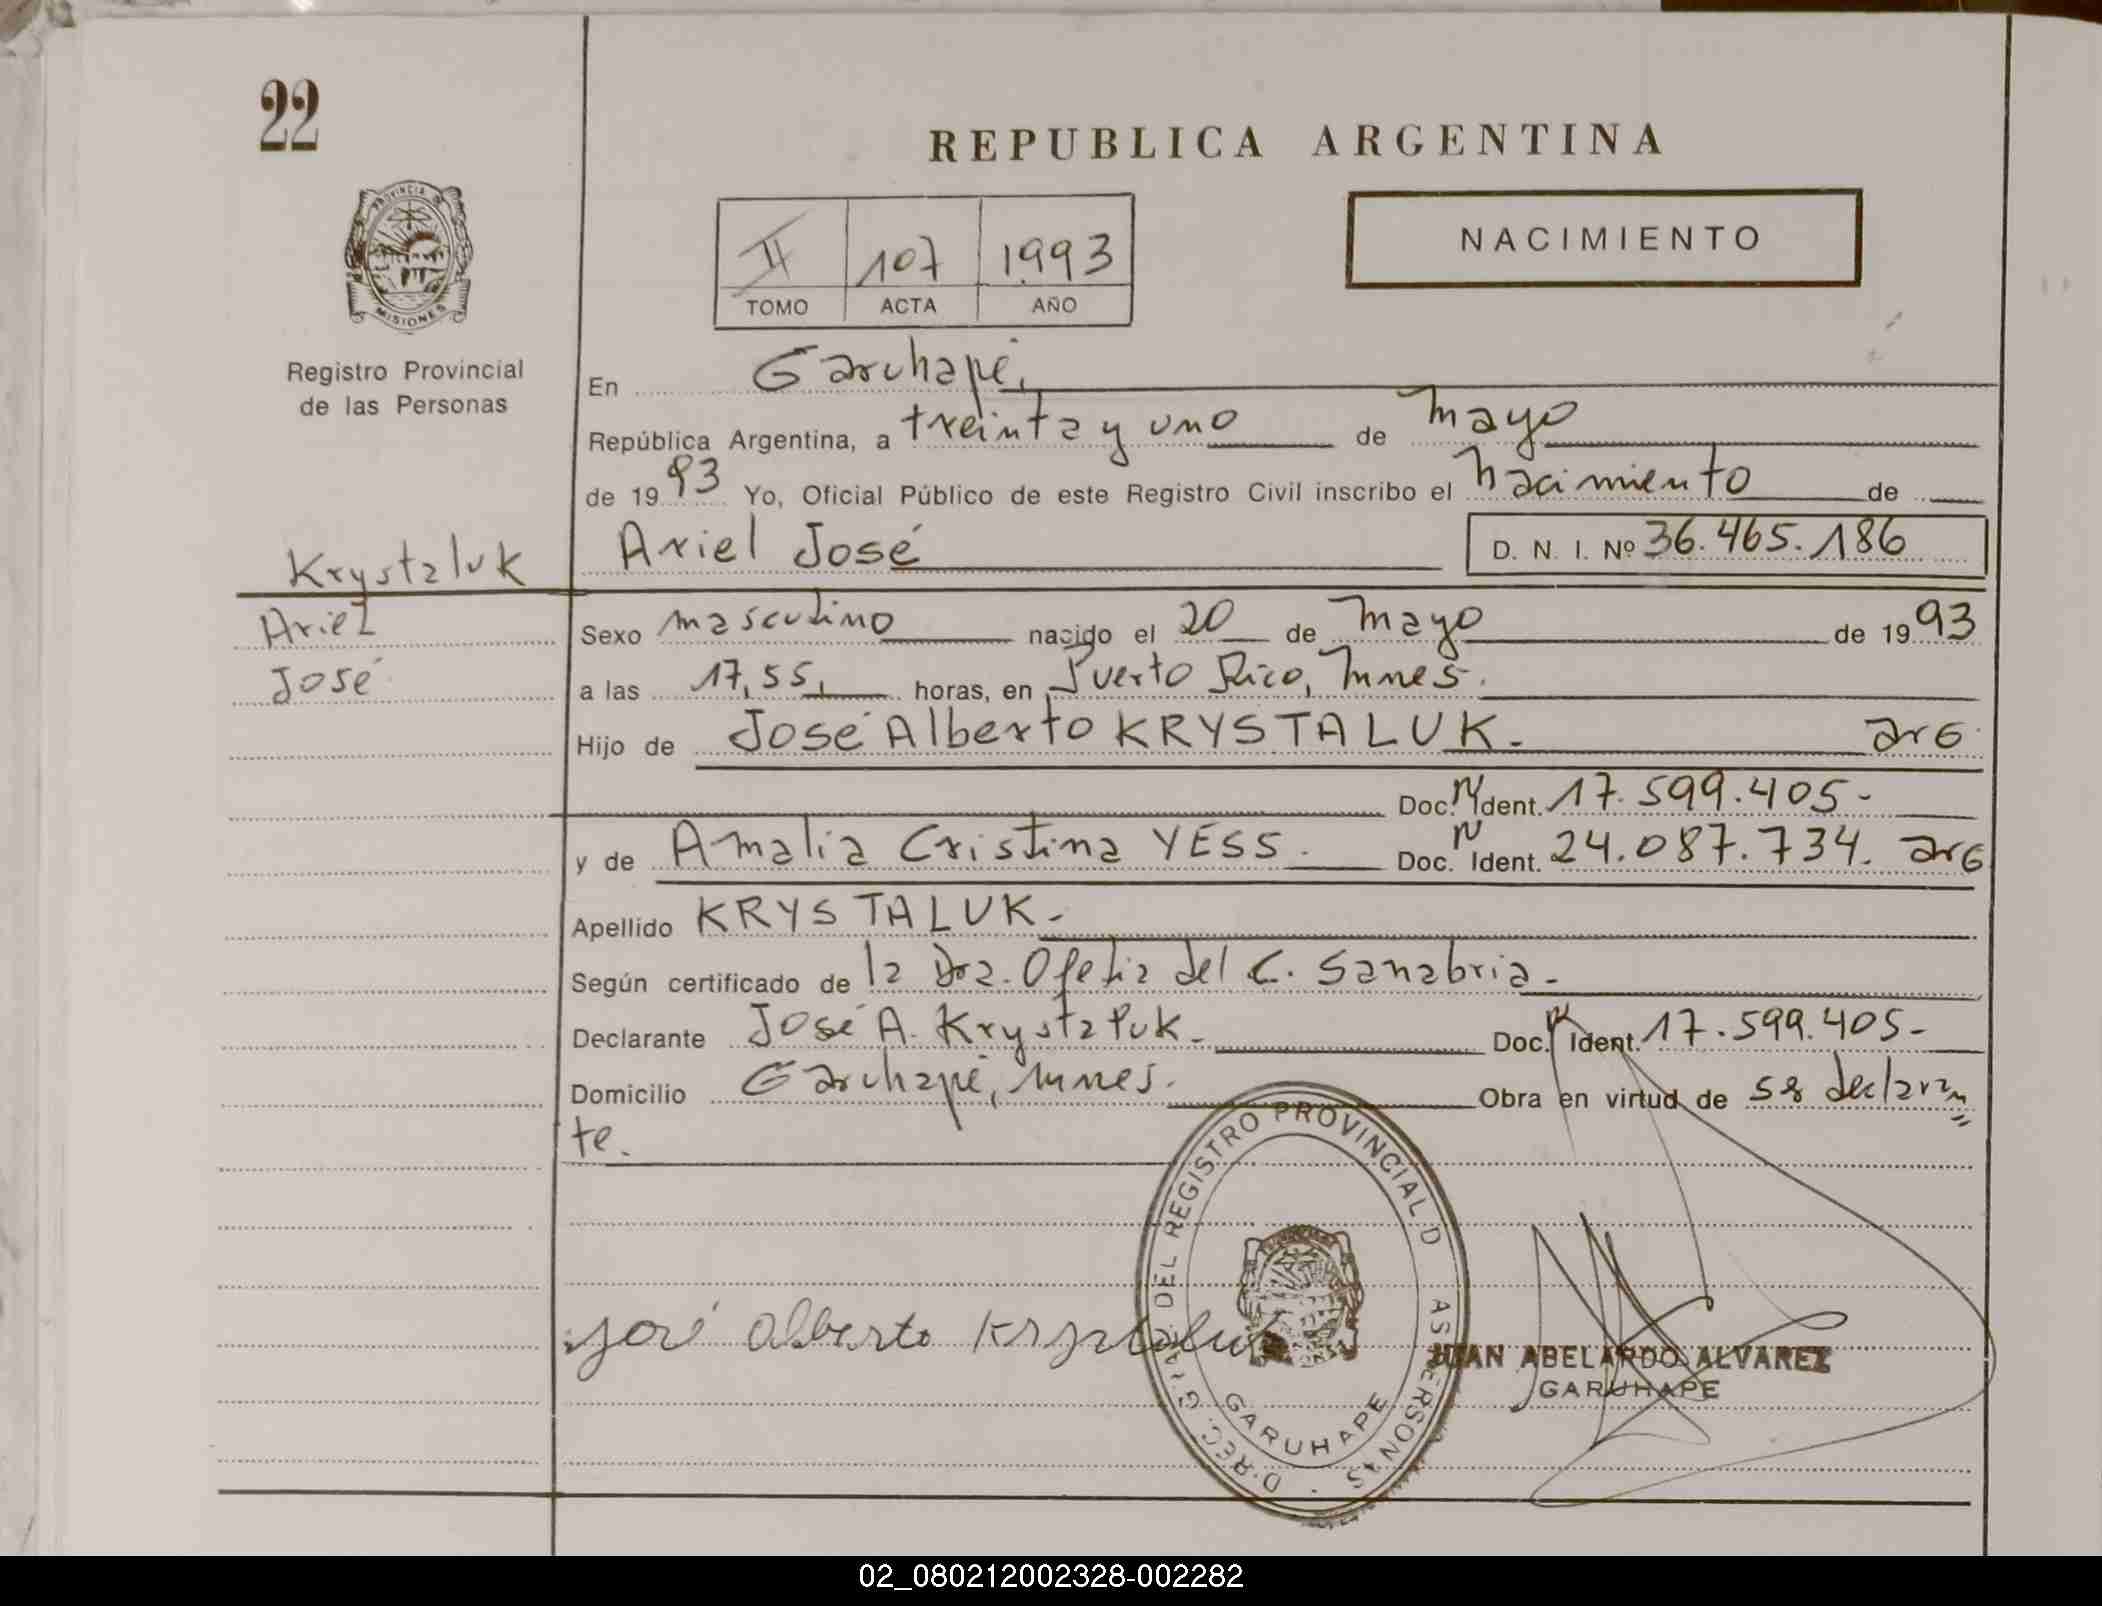 22
REPUBLICA ARGENTINA
PROVINCIA DE
MISIONES
NACIMIENTO
II 107 1993
TOMO ACTA AÑO
Registro Provincial
de las Personas
En Garuhapé,
República Argentina, a treinta y uno de mayo
de 1993 Yo, Oficial Público de este Registro Civil inscribo el nacimiento de
Krystaluk
Ariel José D. N. I. Nº 36.465.186
Ariel
José
Sexo masculino nacido el 20 de mayo de 1993
a las 17,55, horas, en Puerto Rico, Mnes.
Hijo de José Alberto KRYSTALUK. arG
Doc. N Ident. 17.599.405-
y de Amalia Cristina YESS. Doc. N Ident. 24.087.734. arG
Apellido KRYSTALUK-
Según certificado de la Dra. Ofelia del C. Sanabria-
Declarante José A. Krystaluk- Doc. N Ident. 17.599.405-
Domicilio Garuhapé, Mnes. Obra en virtud de ser declaran
te.
DIREC. GRAL. DEL REGISTRO PROVINCIAL D AS PERSONAS
GARUHAPE
José Alberto Krystaluk
JUAN ABELARDO ALVAREZ
GARUHAPE
02_080212002328-002282